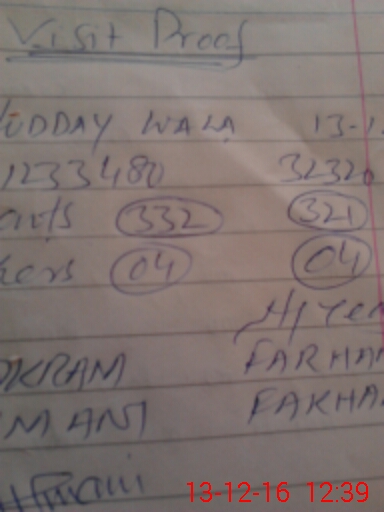 Visit Proof
UDDAY WALA 13-1
1233480 32320
332 321
04 04
OKRAM FARHAN
MANI FAKHA
13-12-16 12:39